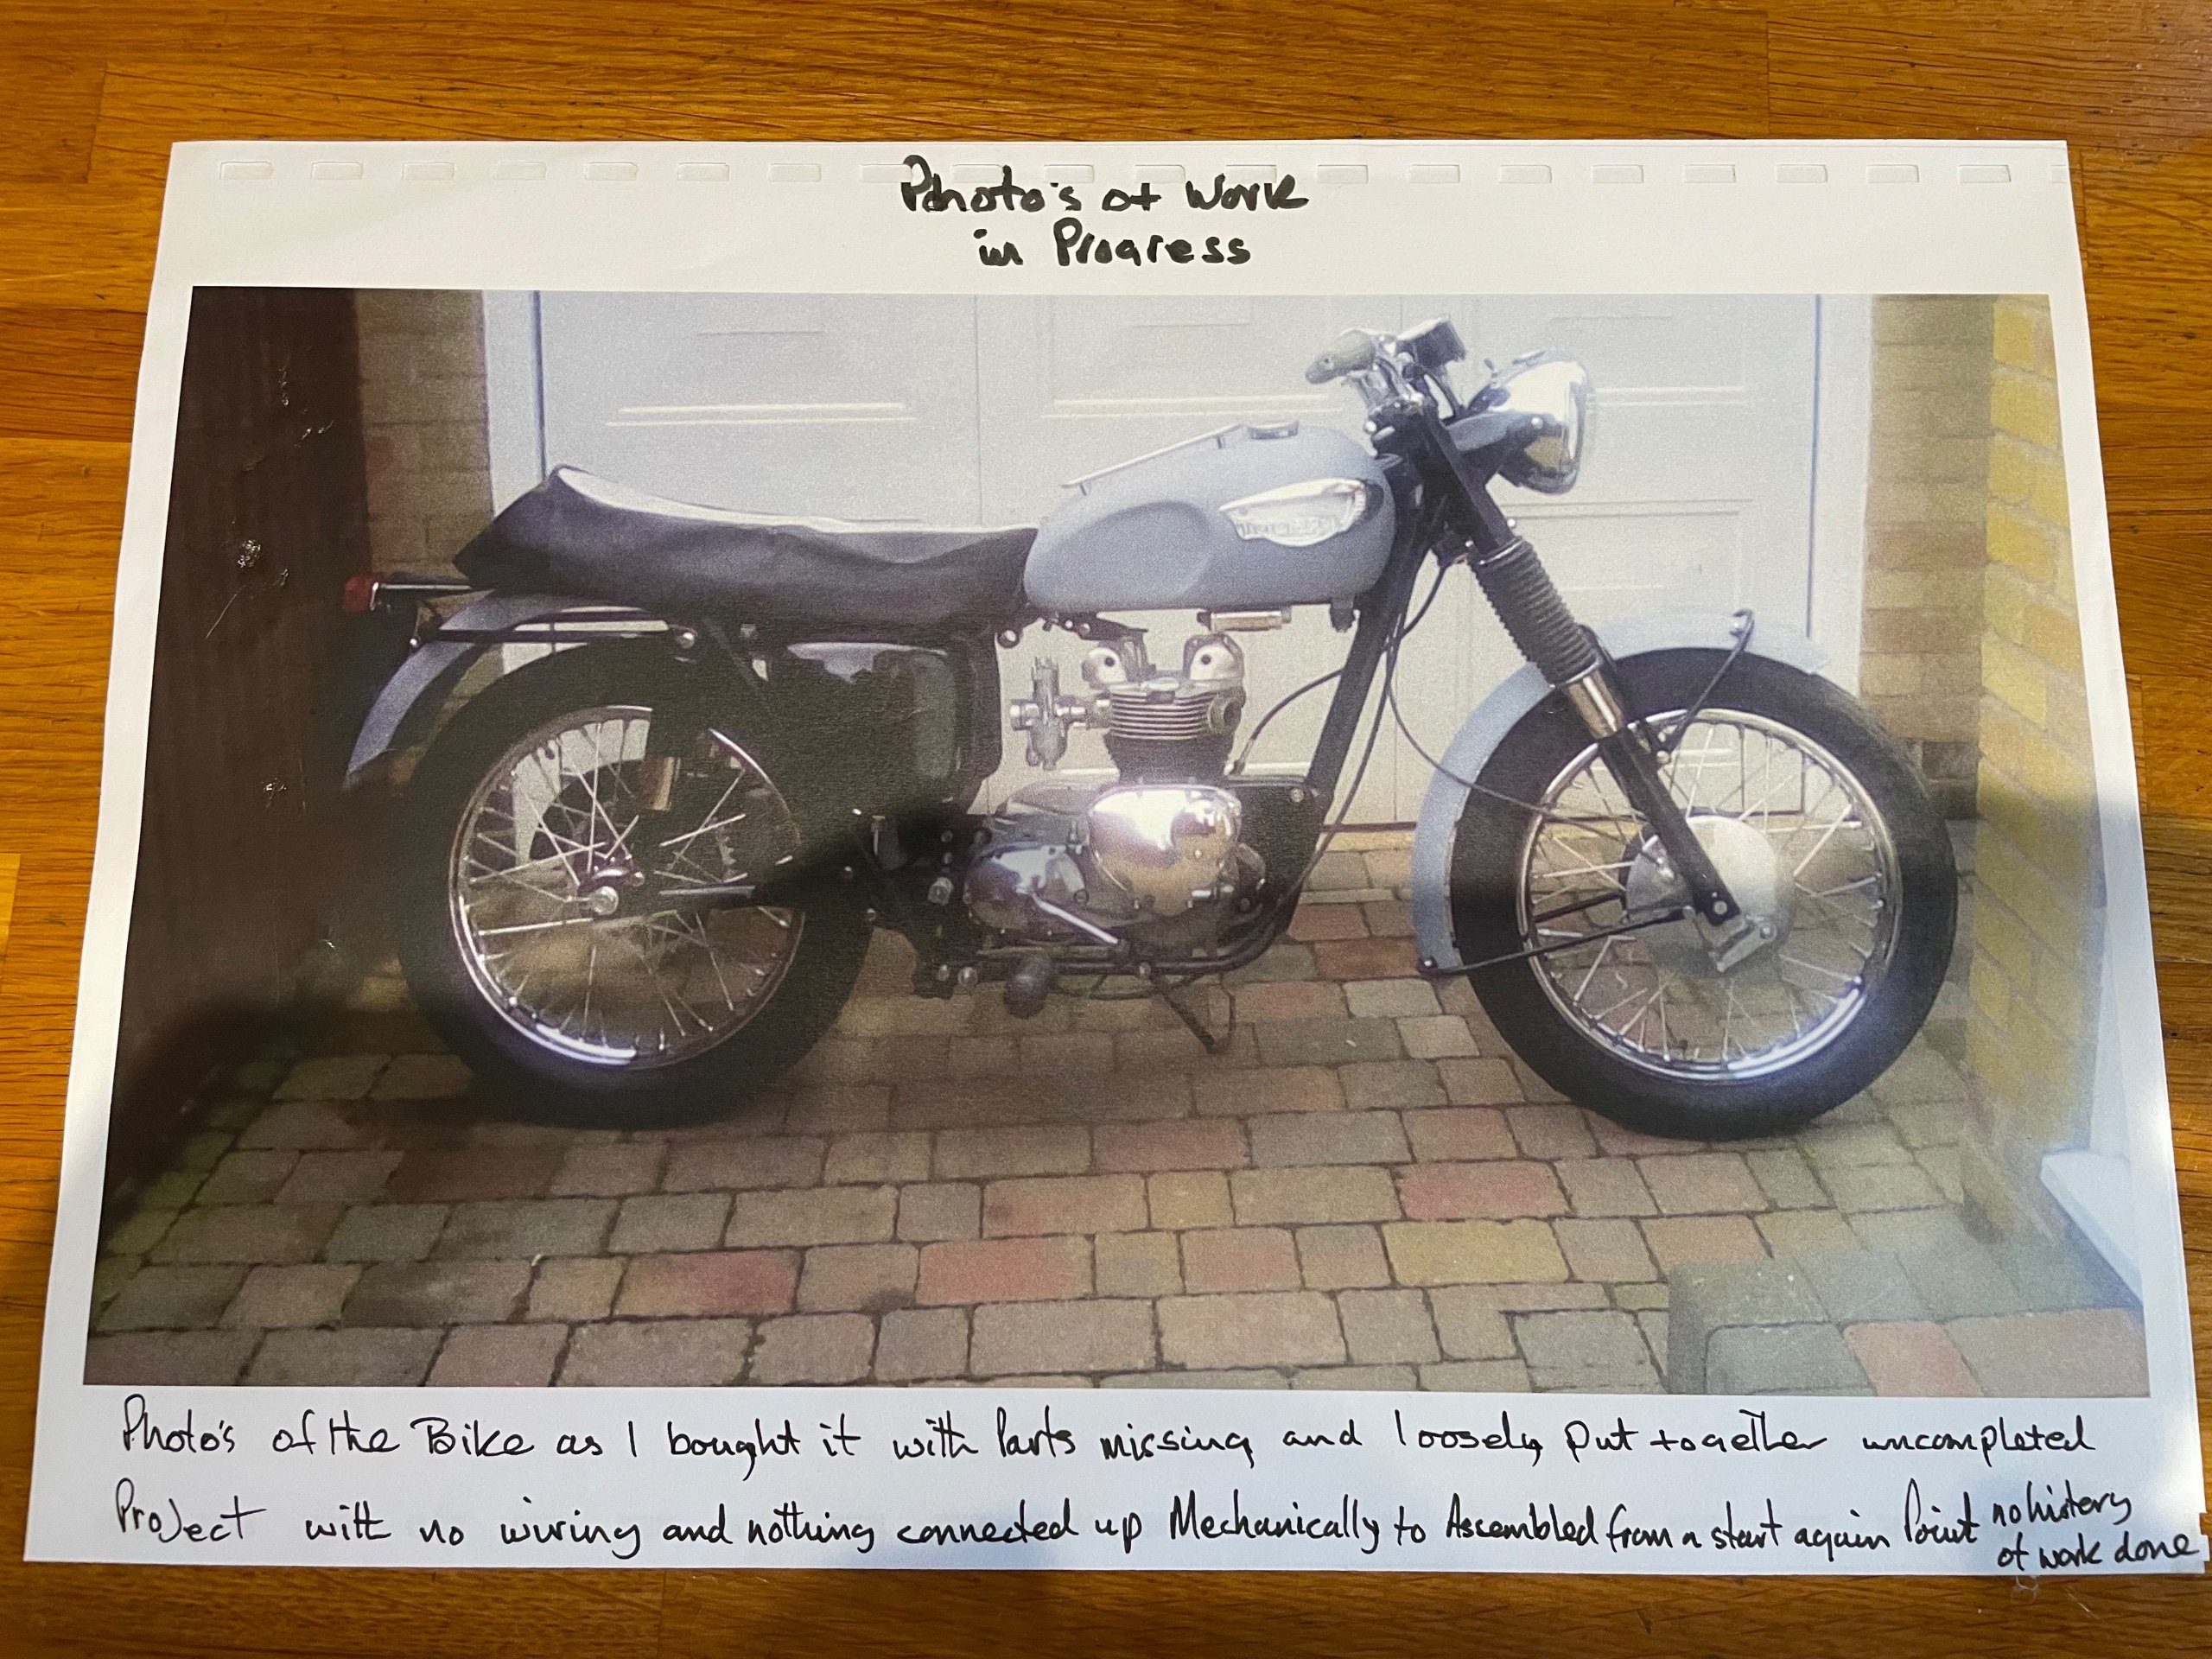 Photo's of Work
in Progress
TRIUMPH
Photo's of the Bike as I bought it with Parts missing and loosely Put together uncompleted
Project with no wiring and nothing connected up Mechanically to Assembled from a start again Point no history
of work done